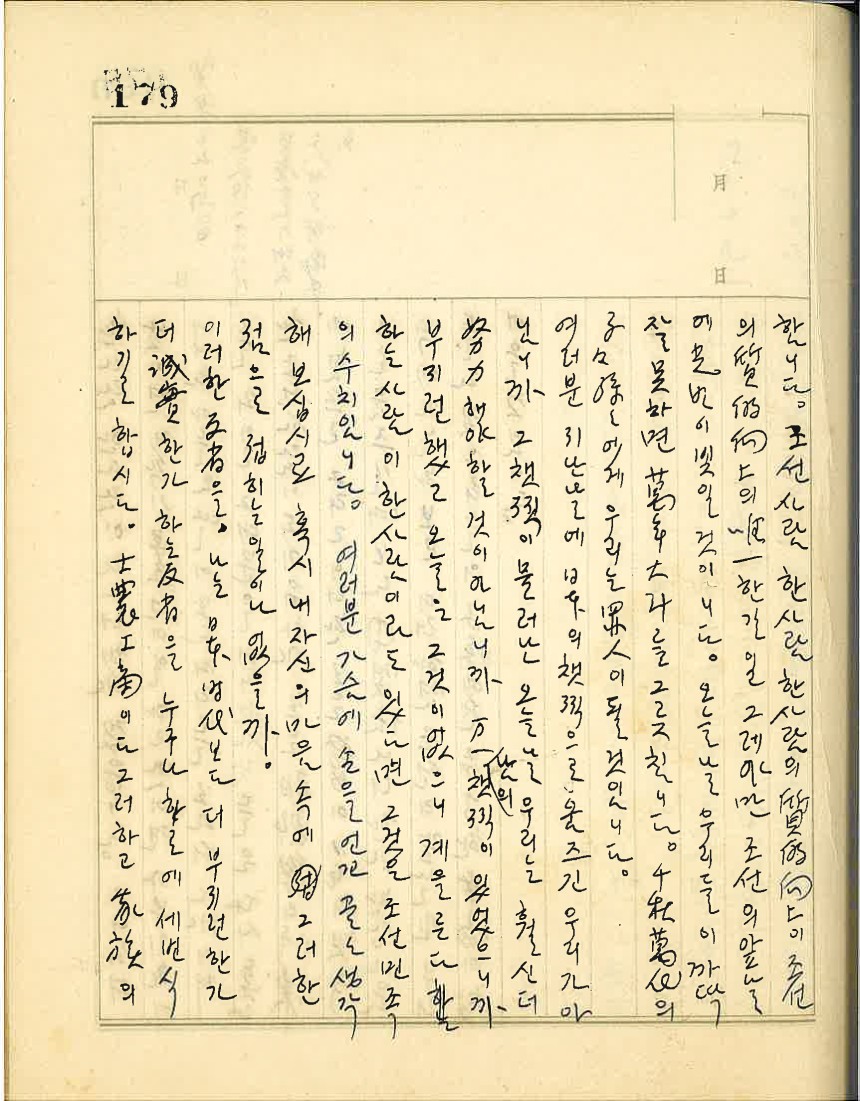 179
月
日
합니다. 조선사람 한사람 한사람의 質的向上이 조선
의 質的向上의 唯一한길일 그레야만 조선의 앞날
에 光明이 빛일 것이니다. 오늘날 우리들이 까딱
잘못하면 萬年大計를 그릇칩니다. 千秋萬代의
子々孫々에게 우리는 罪人이 될것입니다.
여러분 지난날에 日本의 챗찍으로 움즈긴 우리가 아
닙니까. 그 챗찍이 물러난 오늘날 우리는 훨신 더
努力해야할 것이 아닙니까. 万一 남의 챗찍이 있었으니까
부지런했고 오늘은 그것이 없으니 게을른다
하는 사람이 한사람이라도 있다면 그것은 조선민족
의 수치입니다. 여러분 가슴에 손을 언고 곰곰 생각
해 보십시요 혹시 내자신의 마음속에 그러한
점으로 접히는 일이나 없을까.
이러한 反省을. 나는 日本時代보다 더 부지런한가
더 誠實한가 하는 反省을 누구나 하로에 세번식
하기로 합시다. 士農工商이 다 그러하고 家族의